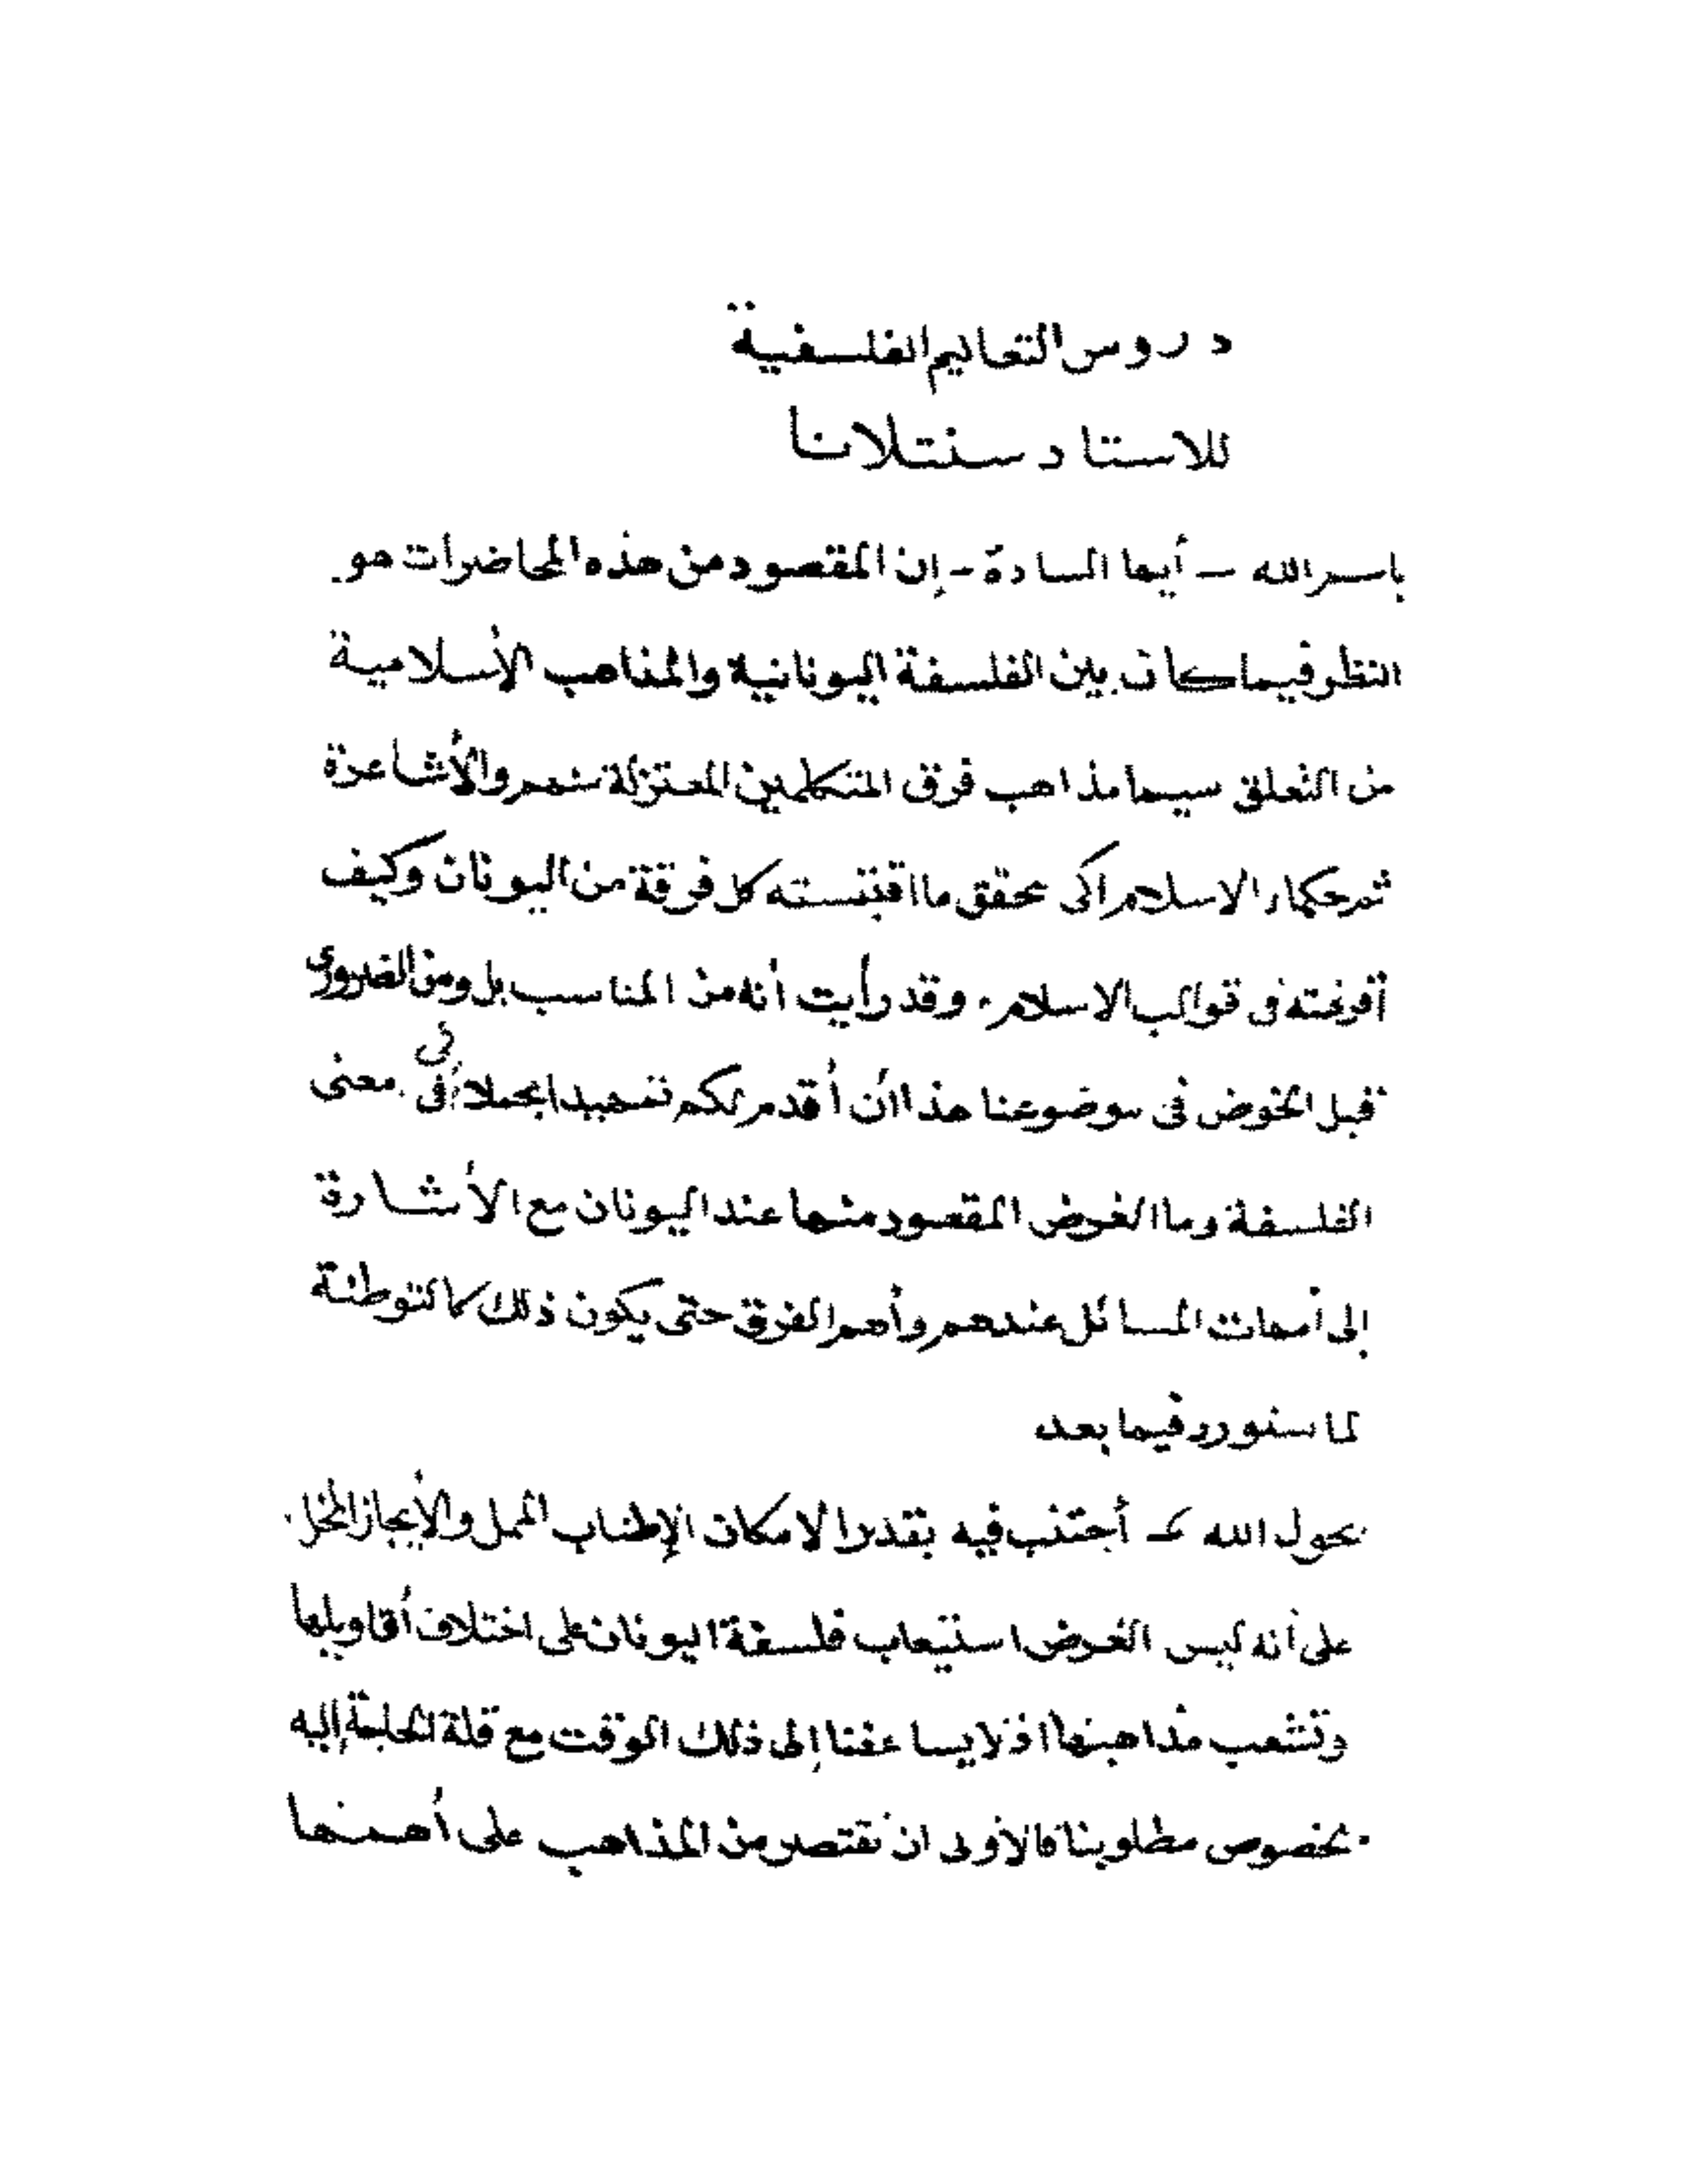 دروس التعاليم الفلسفية
للاستاد سنتلانا
باسم الله - أيها السادة - إن المقصود من هذه المحاضرات هو
النظر فيما كان بين الفلسفة اليونانية والمذاهب الأسلامية
من التعلق سيما مذاهب فرق المتكلمين المعتزلة منهم والأشاعرة
ثم حكماء الاسلام لكى نحقق ما اقتبسته كل فرقة من اليونان وكيف
أفرغته فى قوالب الاسلام. وقد رأيت أنه من المناسب بل ومن الضرورى
قبل الخوض فى موضوعنا هذا أن أقدم لكم تمهيدا مجملا فى معنى
الفلسفة وما الغرض المقصود منها عند اليونان مع الأشارة
إلى أمهات المسائل عندهم وأهم الفرق حتى يكون ذلك كالتوطئة
لما سنورد فيما بعد
بحول الله - أجتنب فيه بقدر الامكان الإطناب الممل والأيجاز المخل
على أنه ليس الغرض استيعاب فلسفة اليونان على اختلاف أقاويلها
وتشعب مذاهبها اذ لا يساعفنا إلى ذلك الوقت مع قلة الحاجة إليه
بخصوص مطلوبنا فالأولى ان نقتصر من المذاهب على أهمها